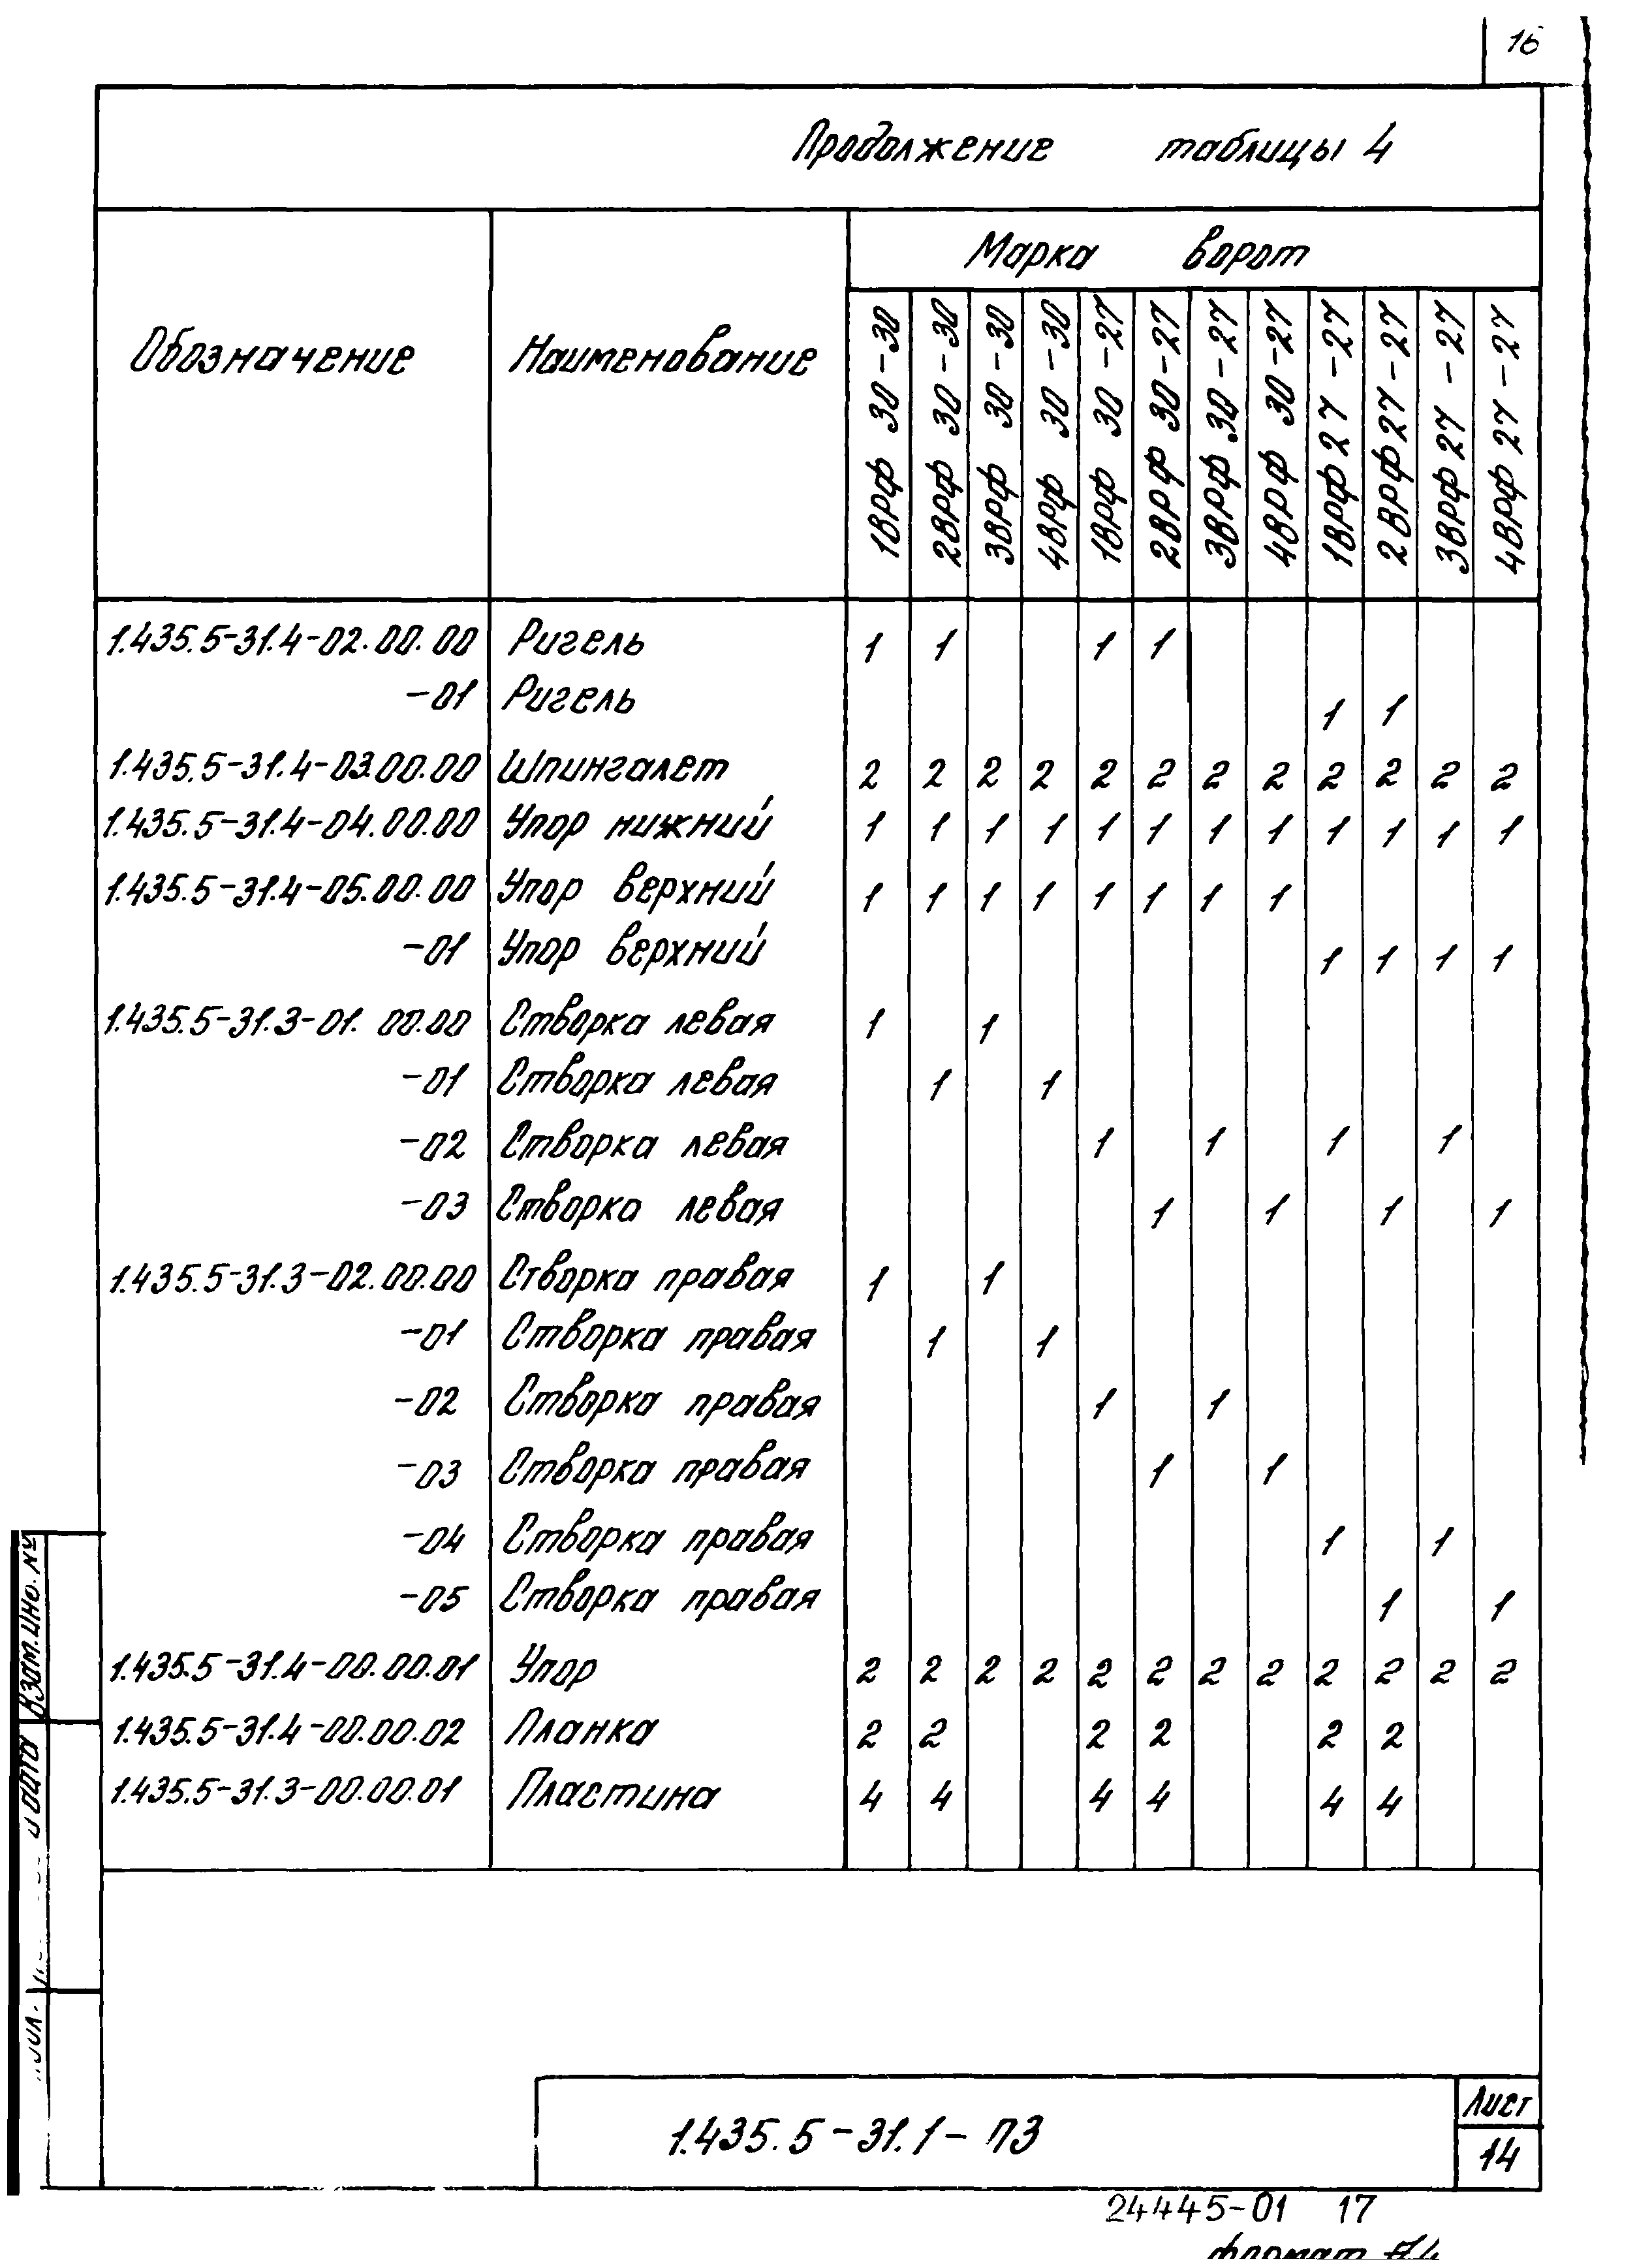 16
Продолжение таблицы 4
Обозначение Наименование Марка ворот
1ВРФ 30-30 2ВРФ 30-30 3ВРФ 30-30 4ВРФ 30-30 1ВРФ 30-27 2ВРФ 30-27 3ВРФ 30-27 4ВРФ 30-27 1ВРФ 27-27 2ВРФ 27-27 3ВРФ 27-27 4ВРФ 27-27
1.435.5-31.4-02.00.00 Ригель 1 1 1 1
-01 Ригель 1 1
1.435.5-31.4-03.00.00 Шпингалет 2 2 2 2 2 2 2 2 2 2 2 2
1.435.5-31.4-04.00.00 Упор нижний 1 1 1 1 1 1 1 1 1 1 1 1
1.435.5-31.4-05.00.00 Упор верхний 1 1 1 1 1 1 1 1
-01 Упор верхний 1 1 1 1
1.435.5-31.3-01.00.00 Створка левая 1 1
-01 Створка левая 1 1
-02 Створка левая 1 1 1 1
-03 Створка левая 1 1 1 1
1.435.5-31.3-02.00.00 Створка правая 1 1
-01 Створка правая 1 1
-02 Створка правая 1 1
-03 Створка правая 1 1
-04 Створка правая 1 1
-05 Створка правая 1 1
1.435.5-31.4-00.00.01 Упор 2 2 2 2 2 2 2 2 2 2 2 2
1.435.5-31.4-00.00.02 Планка 2 2 2 2 2 2
1.435.5-31.3-00.00.01 Пластина 4 4 4 4 4 4
Взам. инв. №
дата
1.435.5-31.1-ПЗ
Лист
14
24445-01 17
формат